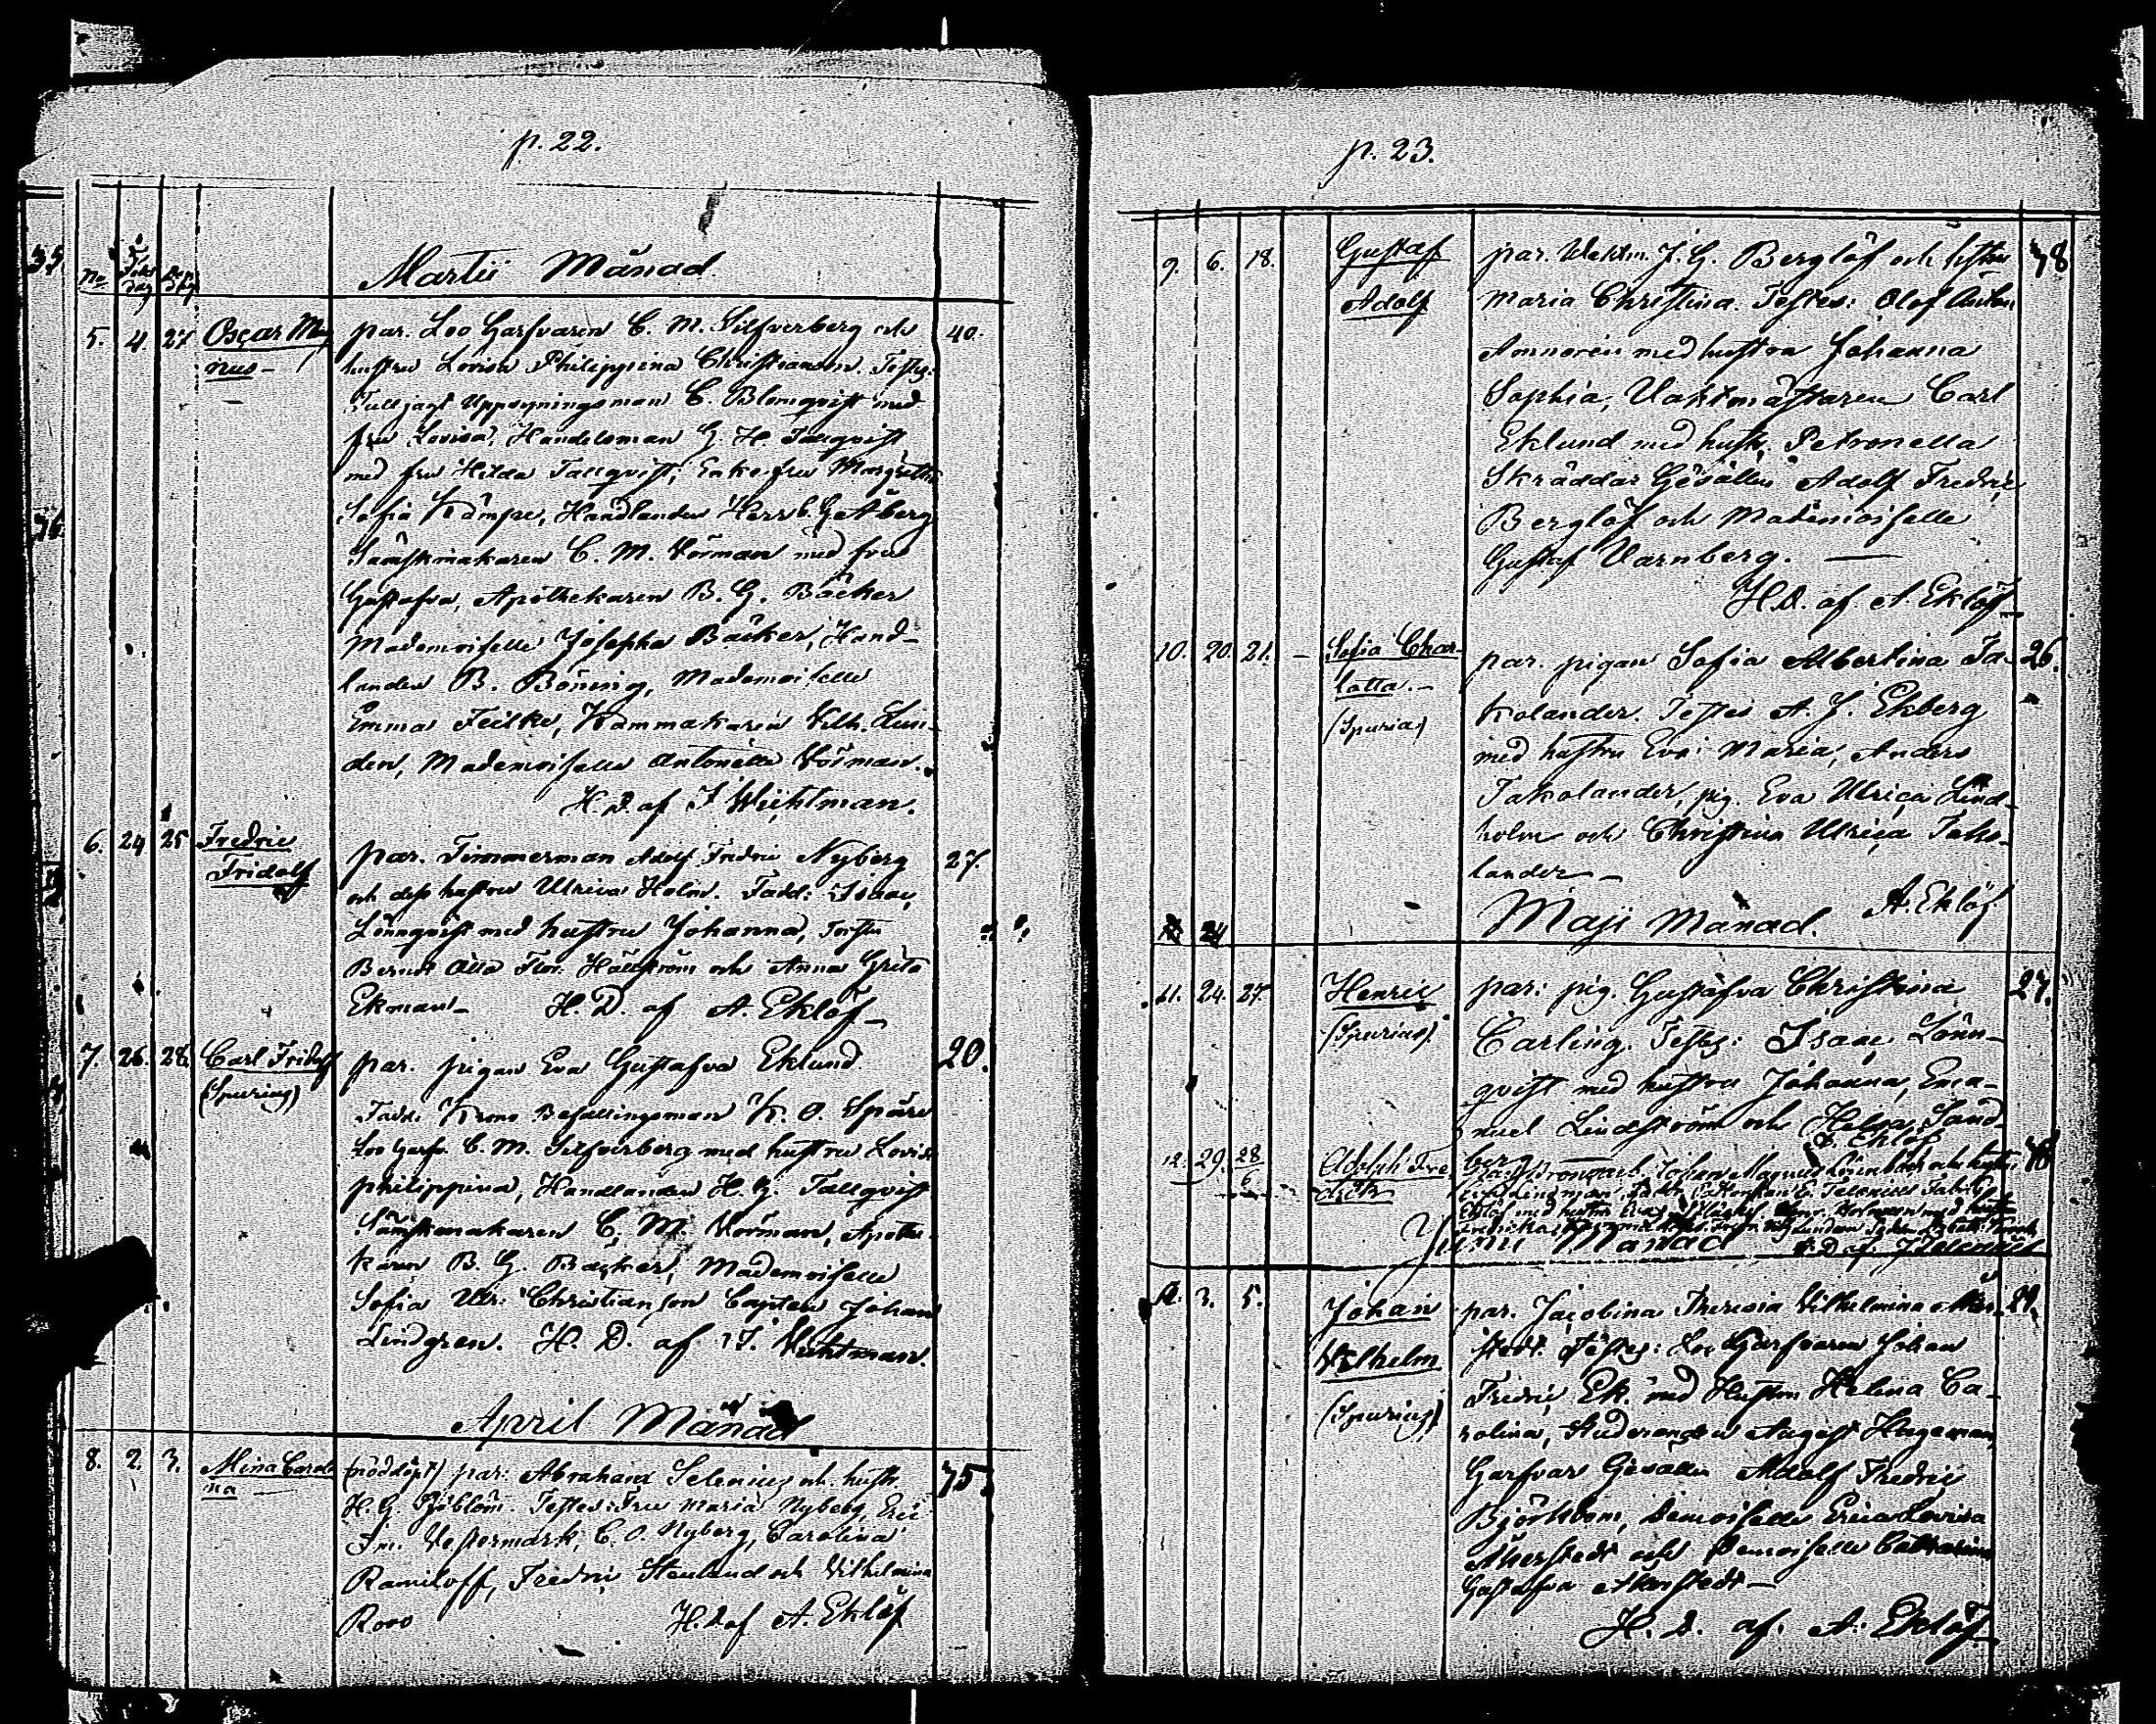 p. 22.
35
36
No Föd. dag Döp. dag
Martii Månad
5. 4. 27 Oscar Mag par. Loo Garfvaren C. M. Silfverberg och 40.
nus- hustru Lovisa Philippina Christianson. Testes:
Tulljagt Uppsyningsman C. Blomqvist med
fru Lovisa, Handelsman G. H. Tallqvist
med fru Hilda Tallqvist, Enkefru Margretha
Sofia Kämpe, Handlanden Herr C. G. Åberg
Sämskmakaren C. M. Vörman med fru
Gustafva, Apothekaren B. G. Bäcker
Mademoiselle Josepha Bäcker, Hand-
landen B. Böning, Mademoiselle
Emma Feilke, Kammakaren Vilh. Lun-
den, Mademoiselle Antonette Vörman.
H. D. af J. Wichtman.
6. 24 25 Fredric par. Timmerman Adolf Fredric Nyberg 27.
Fridolf och dess hustru Ulrica Holm. Fadd: Isaac
Lönnqvist med hustru Johanna,
Bernd Otto Hällström och Anna Greta
Ekman- H. D. af A. Eklöf-
7. 26. 28. Carl Fridolf par. pigan Eva Gustafva Eklund. 20.
(Spurius) Fadd: Krono Befallningsman K. O. Spåre
Loo Garfv. C. M. Silfverberg med hustru Lovisa
Philippina, Handlanden H. G. Tallqvist
Sämskmakaren C. M. Vörman, Apothe-
karen B. G. Bäcker, Mademoiselle
Sofia Ulr: Christianson Capten Johan
Lindgren. H. D. af J. Wichtman.
April Månad
8. 2. 3. Mina Caroli (nöddöpt) par: Abraham Selenius och hustr. 75.
na H. G. Sjöblom. Testes: Fru Maria Nyberg, Eric
Im. Vestermark, C. O. Nyberg, Carolina
Ramiloff, Fredric Stenlund och Vilhelmina
Roos H. D. af A. Eklöf
p. 23.
9. 6. 18. Gustaf par. Waktm. J. G. Berglöf och hustru 38
Adolf Maria Christina. Testes: Olof Anton
Amnorén med hustru Johanna
Sophia, Vaktmästaren Carl
Eklund med hustr. Petronella
Skräddar Gesällen Adolf Fredric
Berglöf och Mademoiselle
Gustaf Varnberg. —
H. D. af. A. Eklöf-
10. 20. 21. - Sofia Char- par. pigan Sofia Albertina Ta- 26.
lotta.- kolander. Testes A. J. Ekberg
(Spuria) med hustru Eva Maria, Anders
Takolander, pig. Eva Ulrica Lind-
holm och Christina Ulrica Tako-
lander - A. Eklöf
24 Maji Månad.
11. 24. 27. Henric par: pig. Gustafva Christina 27.
(Spurius) Carling. Testes: Isaac Lönn-
qvist med hustru Johanna, Ema-
nuel Lindström och Helena Sand
berg — A. Eklöf
12. 29. 28/6 Adolph Fre Johan Magnus
drik
Junii Månad
3. 5. Johan par. Jacobina Theresia Vilhelmina Åker- 21.
Vilhelm stedt. Testes: Loo Garfvaren Johan
(Spurius) Fredric Ek med Hustru Helena Ca-
rolina, Studeranden August Hageman,
Garfvar Gesällen Adolf Fredric
Björkbom, Demoiselle Erica Lovisa
Åkerstedt och Demoiselle Catharina
Gustafva Åkerstedt—
H. D. af. A. Eklöf